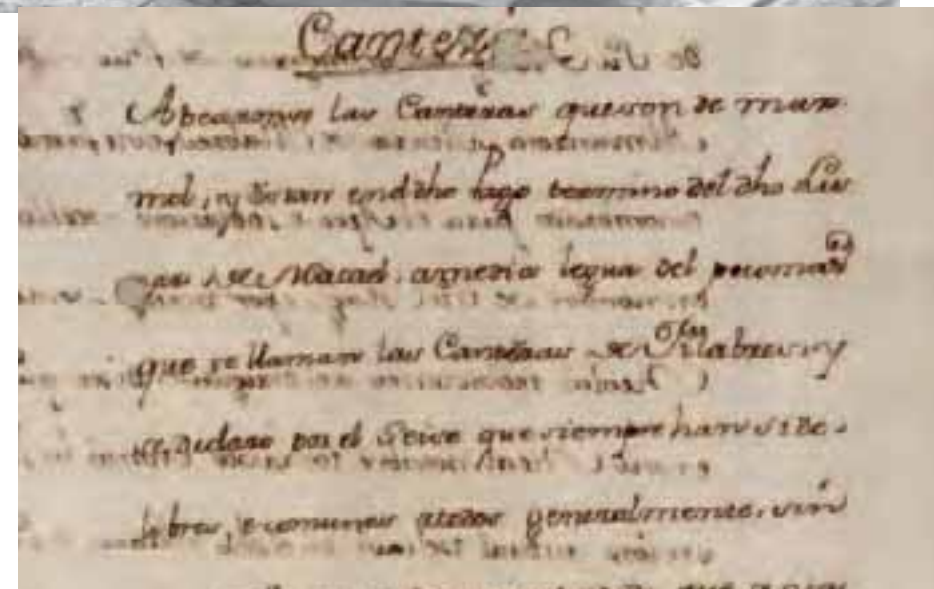 Canter
Apearonse las Canteras que son de mar
mol, y estan en dho Pago termino del dho Lu
gar de Macael a media legua del poco mas
que se llaman las Canteras de Filabres y
se declaro por el Seise que siempre han sido
libres, comunes atodos generalmente, sin